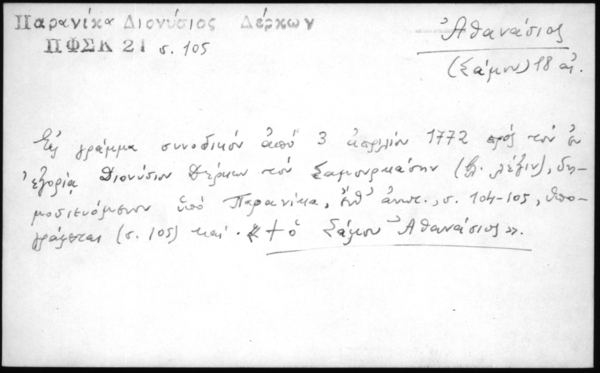 Παρανίκα Διονύσιος Δέρκων
ΠΦΣΚ 21 σ. 105
Ἀθανάσιος
(Σάμου) 18 αἰ.
Εἰς γράμμα συνοδικόν ἀπό 3 ἀπριλίου 1772 πρός τόν ἐν
ἐξορίᾳ Διονύσιον Δέρκων τόν (βλ. λέξιν), δη-
μοσιευόμενον ὑπό Παρανίκα, ἔνθ' ἀνωτ., σ. 104-105, ὑπο-
γράφεται (σ. 105) καί « + ὁ Σάμου Ἀθανάσιος ».